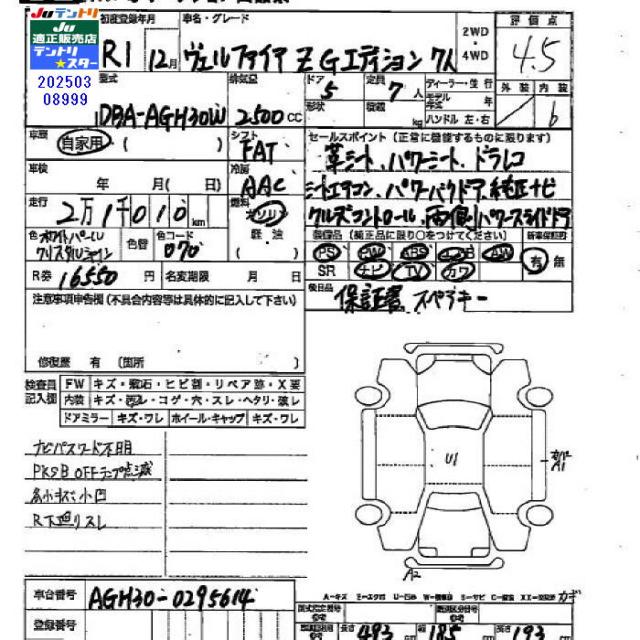 Juテントリ
Ju
適正販売店
テントリ
★スター
202503
08999
初度登録年月
車名・グレード
2WD
4WD
評価点
R1 12月
ヴェルファイア Z Gエディション 7人
4.5
型式
排気量
ドア
定員
ディーラー・並行
外装
内装
DBA-AGH30W
2500 CC
5
7人
形状
積載
kg
モデル年式
年
ハンドル 左・右
6
車歴
自家用
シフト
FAT
セールスポイント (正常に機能するものに限ります)
革シート、パワーシート、ドラレコ
車検
年 月 ( 日)
冷房
AAC
シートエアコン、パワーバックドア、純正ナビ
走行
2万1千010 km
燃料
ガソリン
軽油
クルーズコントロール、両側パワースライドドア
色
ホワイトパール
クリスタルシャイン
色替
色コード
070
装備品 (純正品に限り○をつけてください)
新車保証書
PS PW ABS エアB AW
有 無
SR ナビ TV カワ
R券
16550 円
名変期限
月 日
後日品
保証書 スペアキー
注意事項申告欄 (不具合内容等は具体的に記入して下さい)
修復歴 有 (箇所 )
検査員
記入欄
FW
キズ・飛石・ヒビ割・リペア跡・X要
内装
キズ・汚レ・コゲ・穴・スレ・ヘタリ・破レ
ドアミラー
キズ・ワレ
ホイール・キャップ
キズ・ワレ
ナビパスワード不明
PKSB OFFランプ点滅
各小キズ小凹
R下廻リスレ
U1
A1
A2
車台番号
AGH30-0295614
登録番号
A-キズ
カギ
長さ
493
185
193